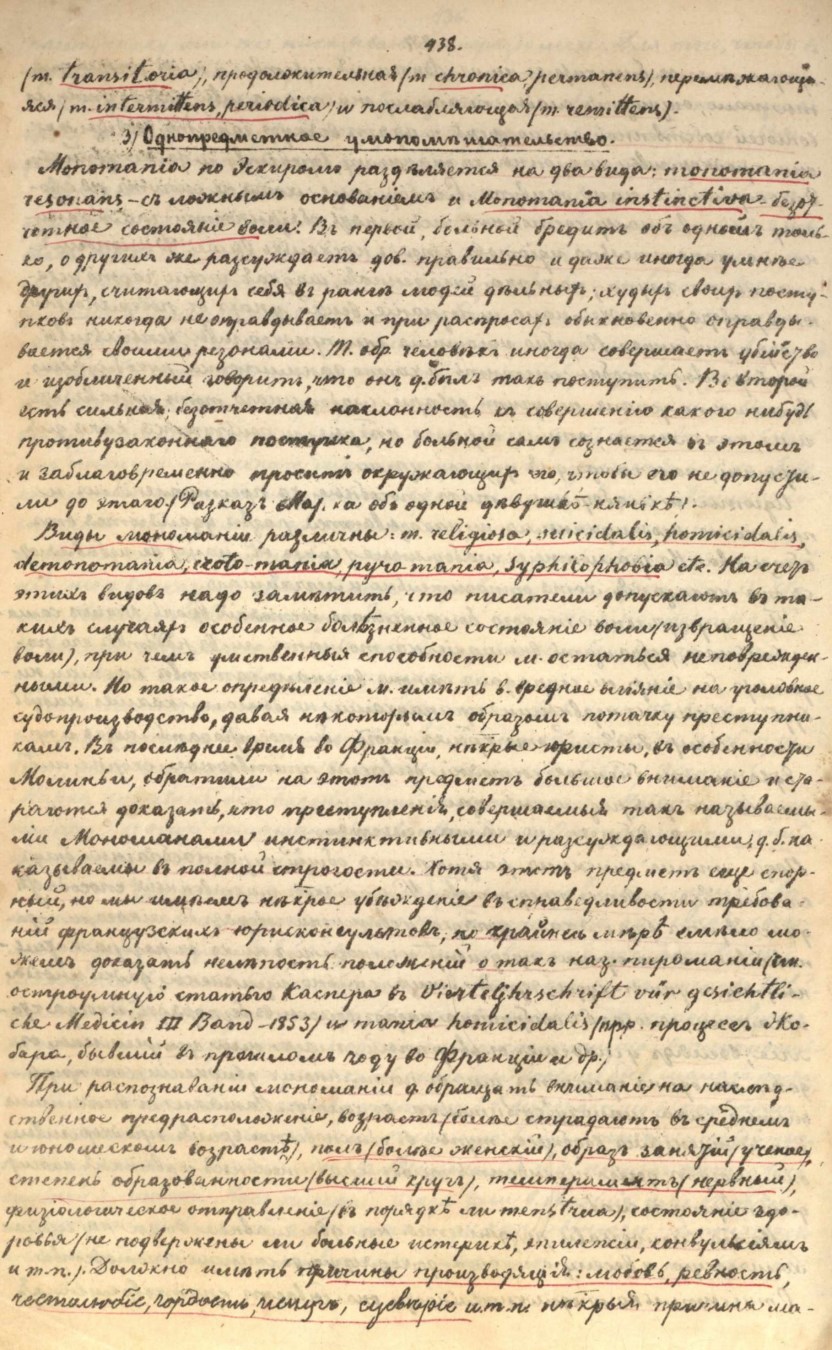 938.
(m. transitoria), продолжительная (m chronica, permanens), перемѣжающа-
яся (m. intermittens, periodica) и послабляющая (m. remittens).
3) Однопредметное умопомѣшательство.
Monomania по Эскиролю раздѣляется на два вида: monomania
resonans – съ ложнымъ основаніемъ и Monomania instinctiva – безот-
четное состояніе воли. Въ первой, больной бредитъ объ одномъ толь-
ко, о другихъ же разсуждаетъ дов. правильно и даже иногда умнѣе
другихъ, считающихъ себя въ рангѣ людей дѣльныхъ; худыхъ своихъ посту-
пковъ никогда не оправдываетъ и при распросахъ обыкновенно оправды-
вается своими резонами. Т. обр. человѣкъ иногда совершаетъ убійство
и изобличенный говоритъ, что онъ д. былъ такъ поступить. Во второй
есть сильная, безотчетная наклонность къ совершенію какого нибудь
противузаконнаго поступка, но больной самъ сознается въ этомъ
и заблаговременно проситъ окружающихъ его, чтобы его не допусти-
ли до этаго (Разказъ объ одной дѣвушкѣ-нянькѣ).
Виды мономаніи различны: m. religiosa, suicidalis, homicidalis,
demonomania, eroto-mania, pyromania, Syphilophobia etc. На счетъ
этихъ видовъ надо замѣтить, что писатели допускаютъ въ та-
кихъ случаяхъ особенное болѣзненное состояніе воли (извращеніе
воли), при чемъ умственныя способности м. остаться неповрежден-
ными. Но такое опредѣленіе м. имѣть в. вредное вліяніе на уголовное
судопроизводство, давая нѣкоторымъ образомъ потачку преступни-
камъ. Въ послѣднее время во Франціи, нѣкрые юристы, въ особенности
Молиньи, обратили на этотъ предметъ большое вниманіе и ста-
раются доказать, что преступленія, совершаемыя такъ называемы-
ми Мономанами инстинктивными и разсуждающими, д. б. на-
казываемы въ полной строгости. Хотя этотъ предметъ еще спор-
ный, но мы имѣемъ нѣкрое убѣжденіе въ справедливости требова-
ній французскихъ юрисконсультовъ, по крайней мѣрѣ смѣло мо-
жемъ доказать нелѣпость положеній о такъ наз. пироманіи (чит.
остроумную статью Каспера въ Vierteljhrschrift vür gesichtli-
che Medicin III Band – 1853) и mania homicidalis (прр. процессъ Жо-
бара, бывшій въ прошломъ году во Франціи и др.)
При распознаваніи мономаніи д. обращать вниманіе на наслѣд-
ственное предрасположеніе, возрастъ (болѣе страдаютъ въ среднемъ
и юношескомъ возрастѣ), полъ (болѣе женскій), образъ занятій (ученое),
степень образованности (высшій кругъ), темпераментъ (нервный),
физіологическое отправленіе (въ порядкѣ ли menstrua), состояніе здо-
ровья (не подвержены ли больные истерикѣ, эпилепсіи, конвульсіямъ
и т. п.). Должно имѣть причины производящія: любовь, ревность,
честолюбіе, гордость, испугъ, суевѣріе и т. п. нѣкрыя